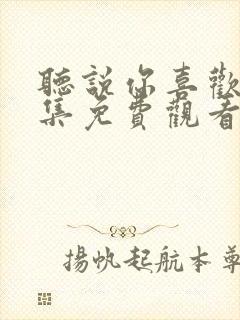 聽說你喜歡
集免費觀看
揚帆起航本尊